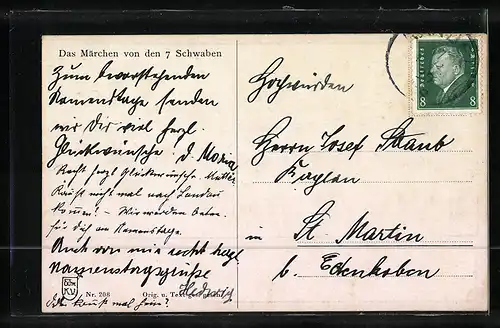 Das Märchen von den 7 Schwaben
Zum bevorstehenden
Namenstage senden
wir Dir viel herzl.
Glückwünsche. d. Maria
Recht herzl Glückwünsche. Mutter
Kannst nicht mal nach Landau
kommen! – Wir werden beten
für dich am Namenstage.
Auch von mir recht herzl
Namenstagsgrüße
Hedwig
Nr. 208 Orig. u. Text ges. gesch.
Hochwürden
Herrn Josef Staub
Kaplan
in St. Martin
b. Edenkoben
Deutsches Reich
8 8